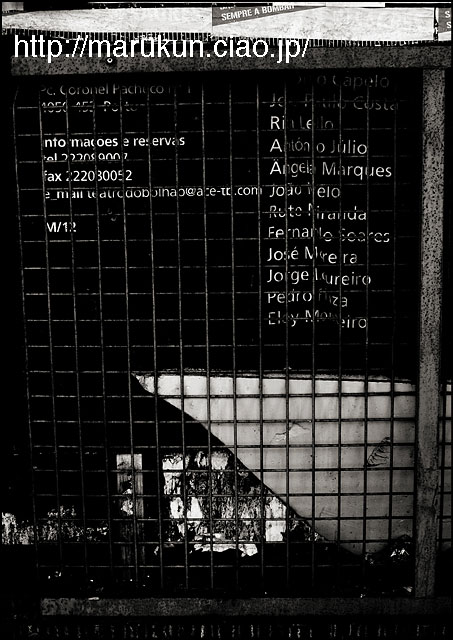 SEMPRE A BOMBAR
http://marukun.ciao.jp/
Pc. Coronel Pacheco
4050-453 Porto
Informaçoes e reservas
tel 222089007
fax 222080052
e_mail teatrodobolhao@ace-tb.com
M/12
Capelo
João Paulo Costa
Rita Lello
António Júlio
Ângela Marques
João Melo
Rute Miranda
Fernando Soares
José Moreira
Jorge Loureiro
Pedro
Eloy Monteiro